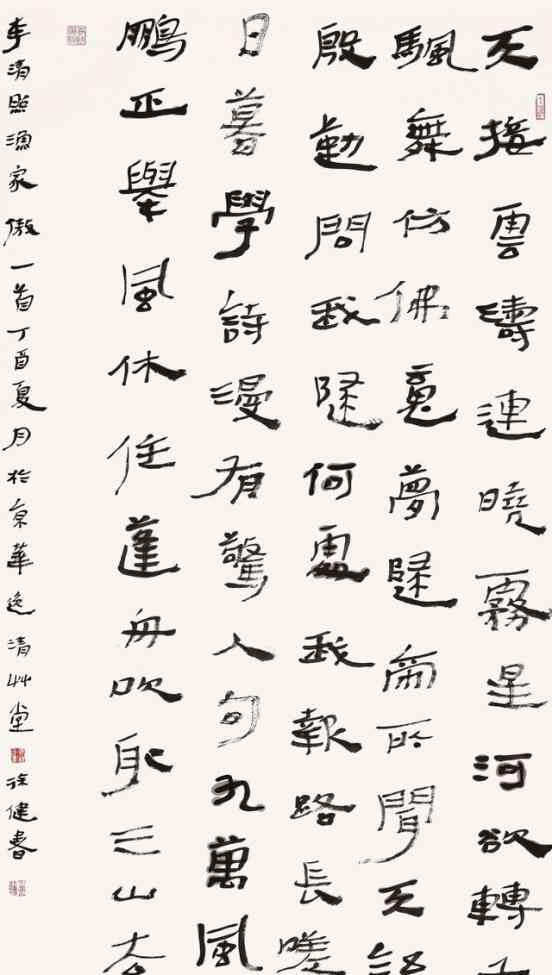 天接雲濤連曉霧星河欲轉
颿舞仿佛夢歸帝所聞天語
殷勤問我歸何處我報路長嗟
日暮學詩漫有驚人句九萬風
鵬正舉風休住蓬舟吹取三山去
李清照漁家傲一首丁酉夏月於京華逸清艸堂徐健書